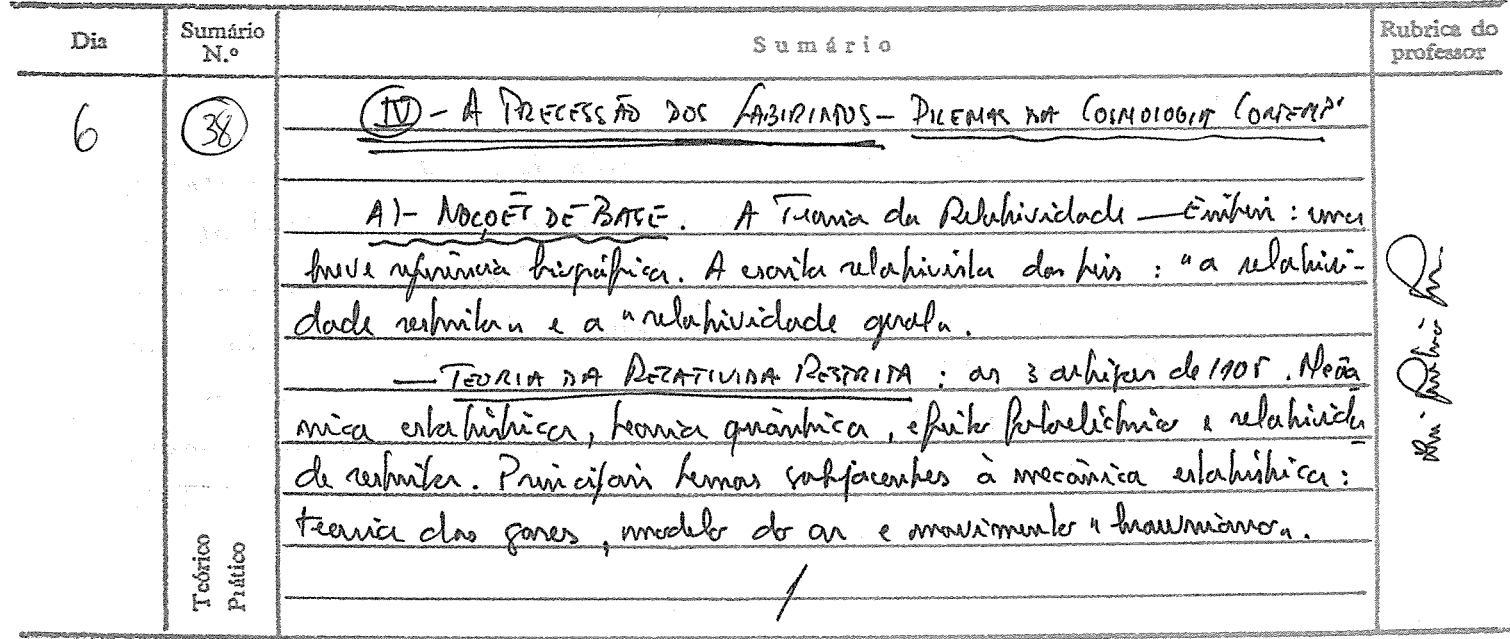 Dia
Sumário N.º
Sumário
Rubrica do professor
6
38
IV - A PRECESSÃO DOS LABIRINTOS - DILEMAS DA COSMOLOGIA CONTEMPª
A) - NOÇÕES DE BASE. A Teoria da Relatividade — Einstein : uma
breve referência biográfica. A escrita relativista das leis : "a relativi-
dade restrita" e a "relatividade geral".
— TEORIA DA RELATIVIDA RESTRITA : os 3 artigos de 1905. Mecâ
nica estatística, teoria quântica, efeito fotoeléctrico e relativida
de restrita. Principais temas subjacentes à mecânica estatística :
teoria dos gases, modelo do ar e movimento "browniano".
Teórico
Prático